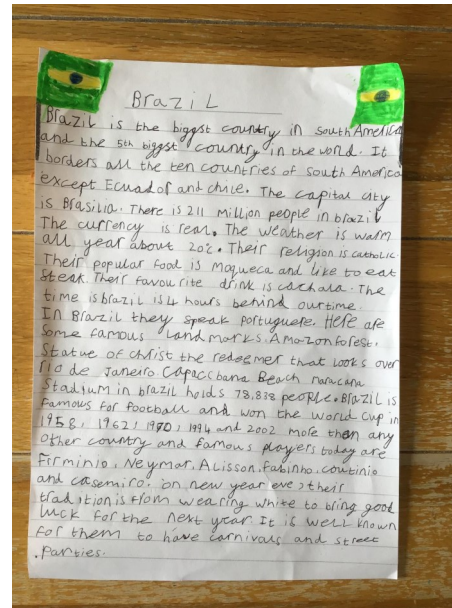 Brazil
Brazil is the biggst country in south America
and the 5th biggst country in the world. It
borders all the ten countries of south America
except Ecuador and chile. The capital city
is Brasilia. There is 211 million people in brazil
The currency is real. The weather is warm
all year about 20°c. Their religson is catholic.
Their popular food is Moqueca and like to eat
steak. Their favourite drink is cachala. The
time is brazil is 4 hours behind our time.
In Brazil they speak portuguese. Here are
some famous landmarks. Amazon forest.
Statue of christ the redeemer that looks over
rio de Janeiro. Copaccbana Beach maracana
Stadium in brazil holds 78,838 people. Brazil is
famous for football and won the world cup in
1958, 1962, 1970, 1994 and 2002 more than any
other country and famous players today are
Firminio, Neymar, Alisson, Fabinho, coutinio
and casemiro. on new year eve, their
tradition is from wearing white to bring good
luck for the next year. It is well known
for them to have carnivals and street
parties.